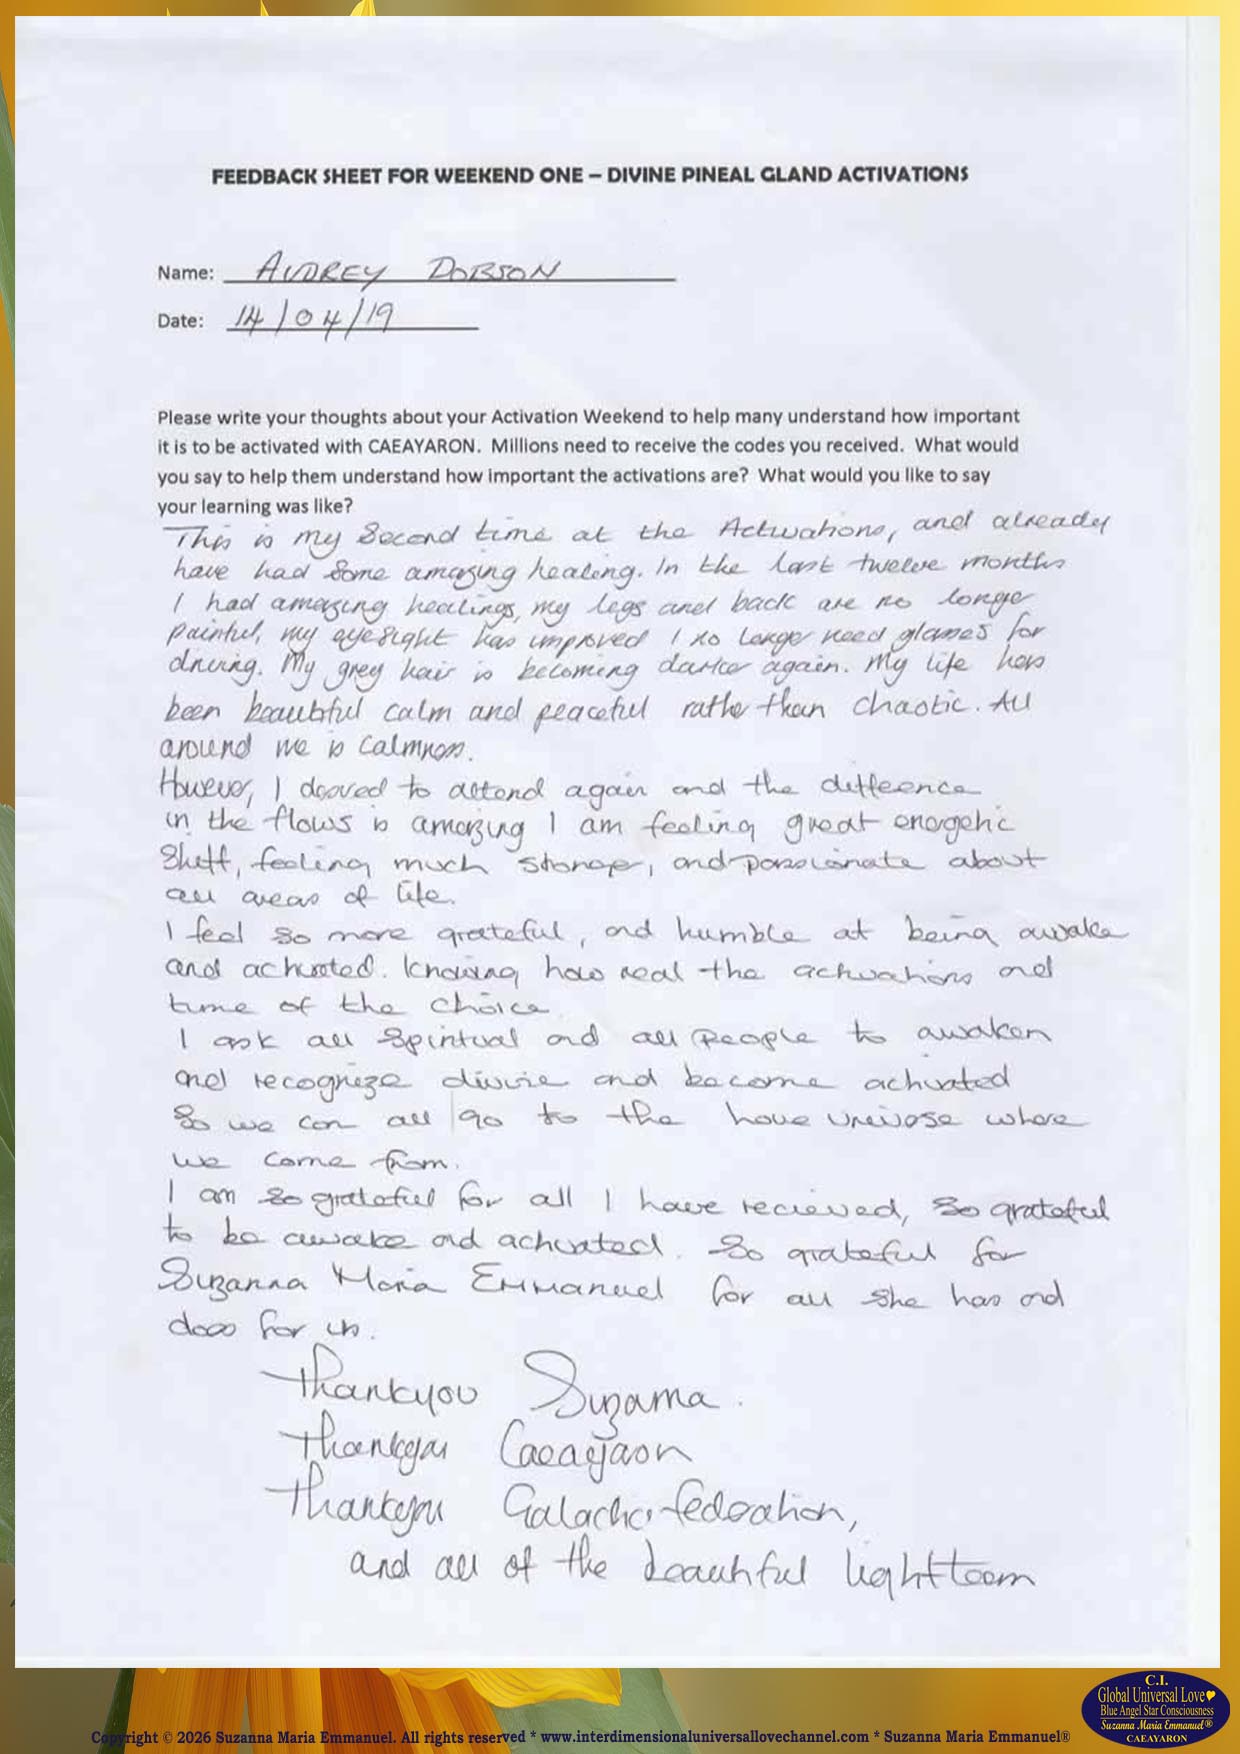 FEEDBACK SHEET FOR WEEKEND ONE – DIVINE PINEAL GLAND ACTIVATIONS
Name: AUDREY DOBSON
Date: 14/04/19
Please write your thoughts about your Activation Weekend to help many understand how important
it is to be activated with CAEAYARON. Millions need to receive the codes you received. What would
you say to help them understand how important the activations are? What would you like to say
your learning was like?
This is my Second time at the Activations, and already
have had some amazing healing. In the last twelve months
I had amazing healings, my legs and back are no longer
painful, my eyesight has improved I no longer need glasses for
driving. My grey hair is becoming darker again. My life has
been beautiful calm and peaceful rather than chaotic. All
around me is calmness.
However, I to attend again and the difference
in the flows is amazing I am feeling great energetic
Shift, feeling much stronger, and passionate about
all areas of life.
I feel so more grateful, and humble at being awake
and activated. Knowing how real the activations and
time of the choice.
I ask all Spiritual and all People to awaken
and recognize divine and become activated
So we can all go to the home universe where
we come from.
I am so grateful for all I have recieved, so grateful
to be awake and activated. So grateful for
Suzanna Maria Emmanuel for all she has and
does for us.
Thankyou Suzanna.
Thankyou Caeayaron
Thankyou Galactic federation,
and all of the beautiful lightteam
C.I.
Global Universal Love
Blue Angel Star Consciousness
Suzanna Maria Emmanuel®
CAEAYARON
Copyright © 2026 Suzanna Maria Emmanuel. All rights reserved * www.interdimensionaluniversallovechannel.com * Suzanna Maria Emmanuel®